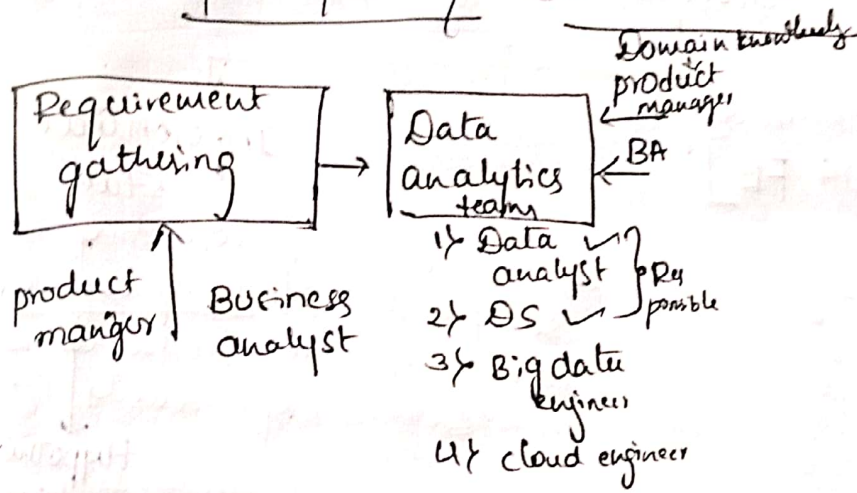 Domain knowledy
product
manager
Requirement
gathering
Data
analytics
teams
BA
product
manger
Business
analyst
1) Data
analyst
2) DS
3) Big data
engineer
4) cloud engineer
Res
ponible